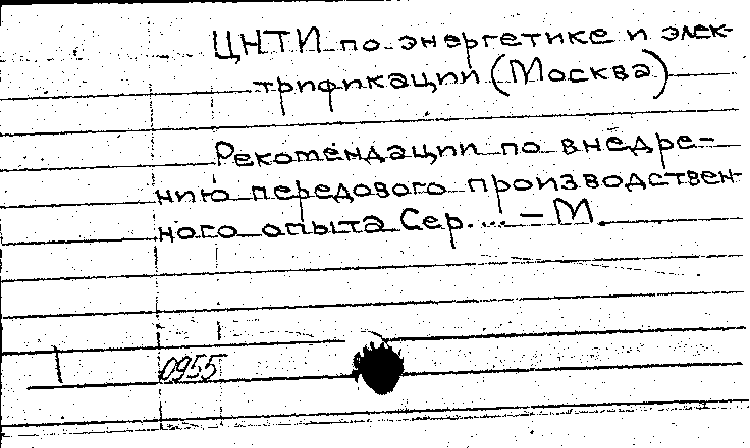 ЦНТИ по энергетике и элек-
трификации (Москва)
Рекомендации по внедре-
нию передового производствен-
ного опыта Сер. ... – М.
0955